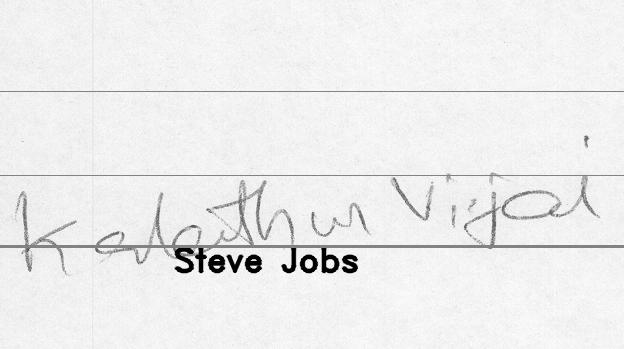 Kalaithur Vijai
Steve Jobs